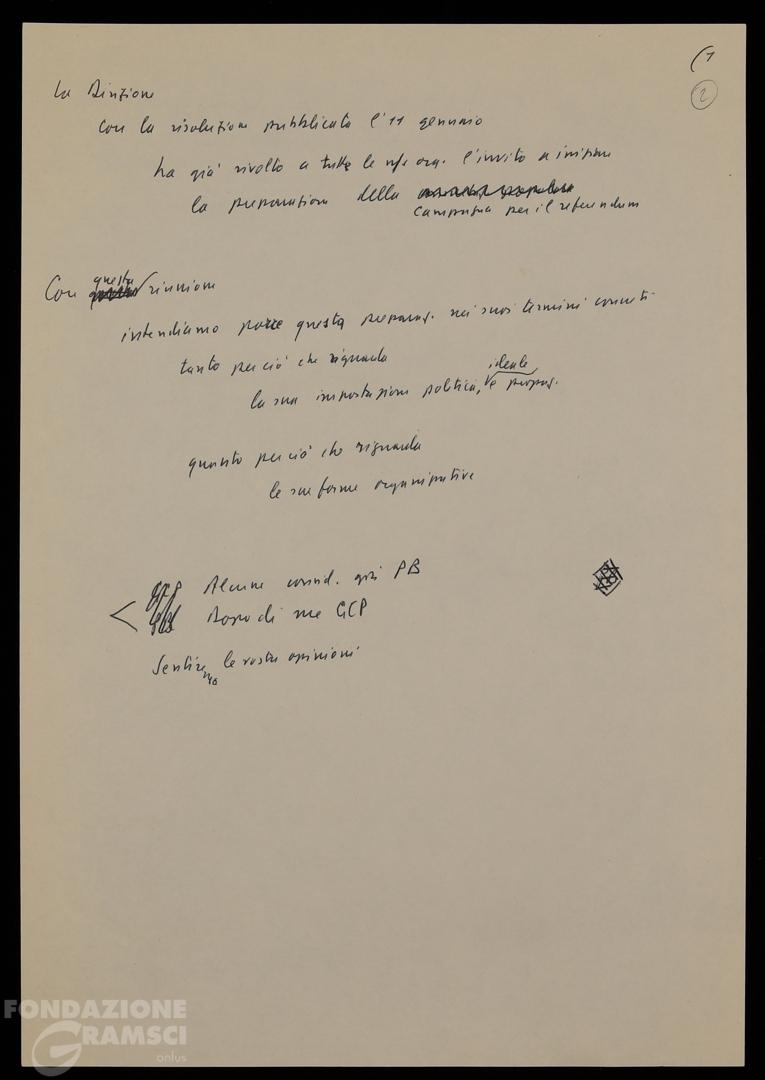 (1
2
La Direzione
con la risoluzione pubblicata l'11 gennaio
ha già rivolto a tutte le ns/ org. l'invito a iniziare
la preparazione della
campagna per il referendum
Con questa riunione
intendiamo porre questa preparaz. nei suoi termini concreti
tanto per ciò che riguarda
la sua impostazione politica, ideale e propag.
quanto per ciò che riguarda
le sue forme organizzative
Alcune consid. PB
Dopo di me GCP
Sentiremo le vostre opinioni
FONDAZIONE
GRAMSCI
onlus